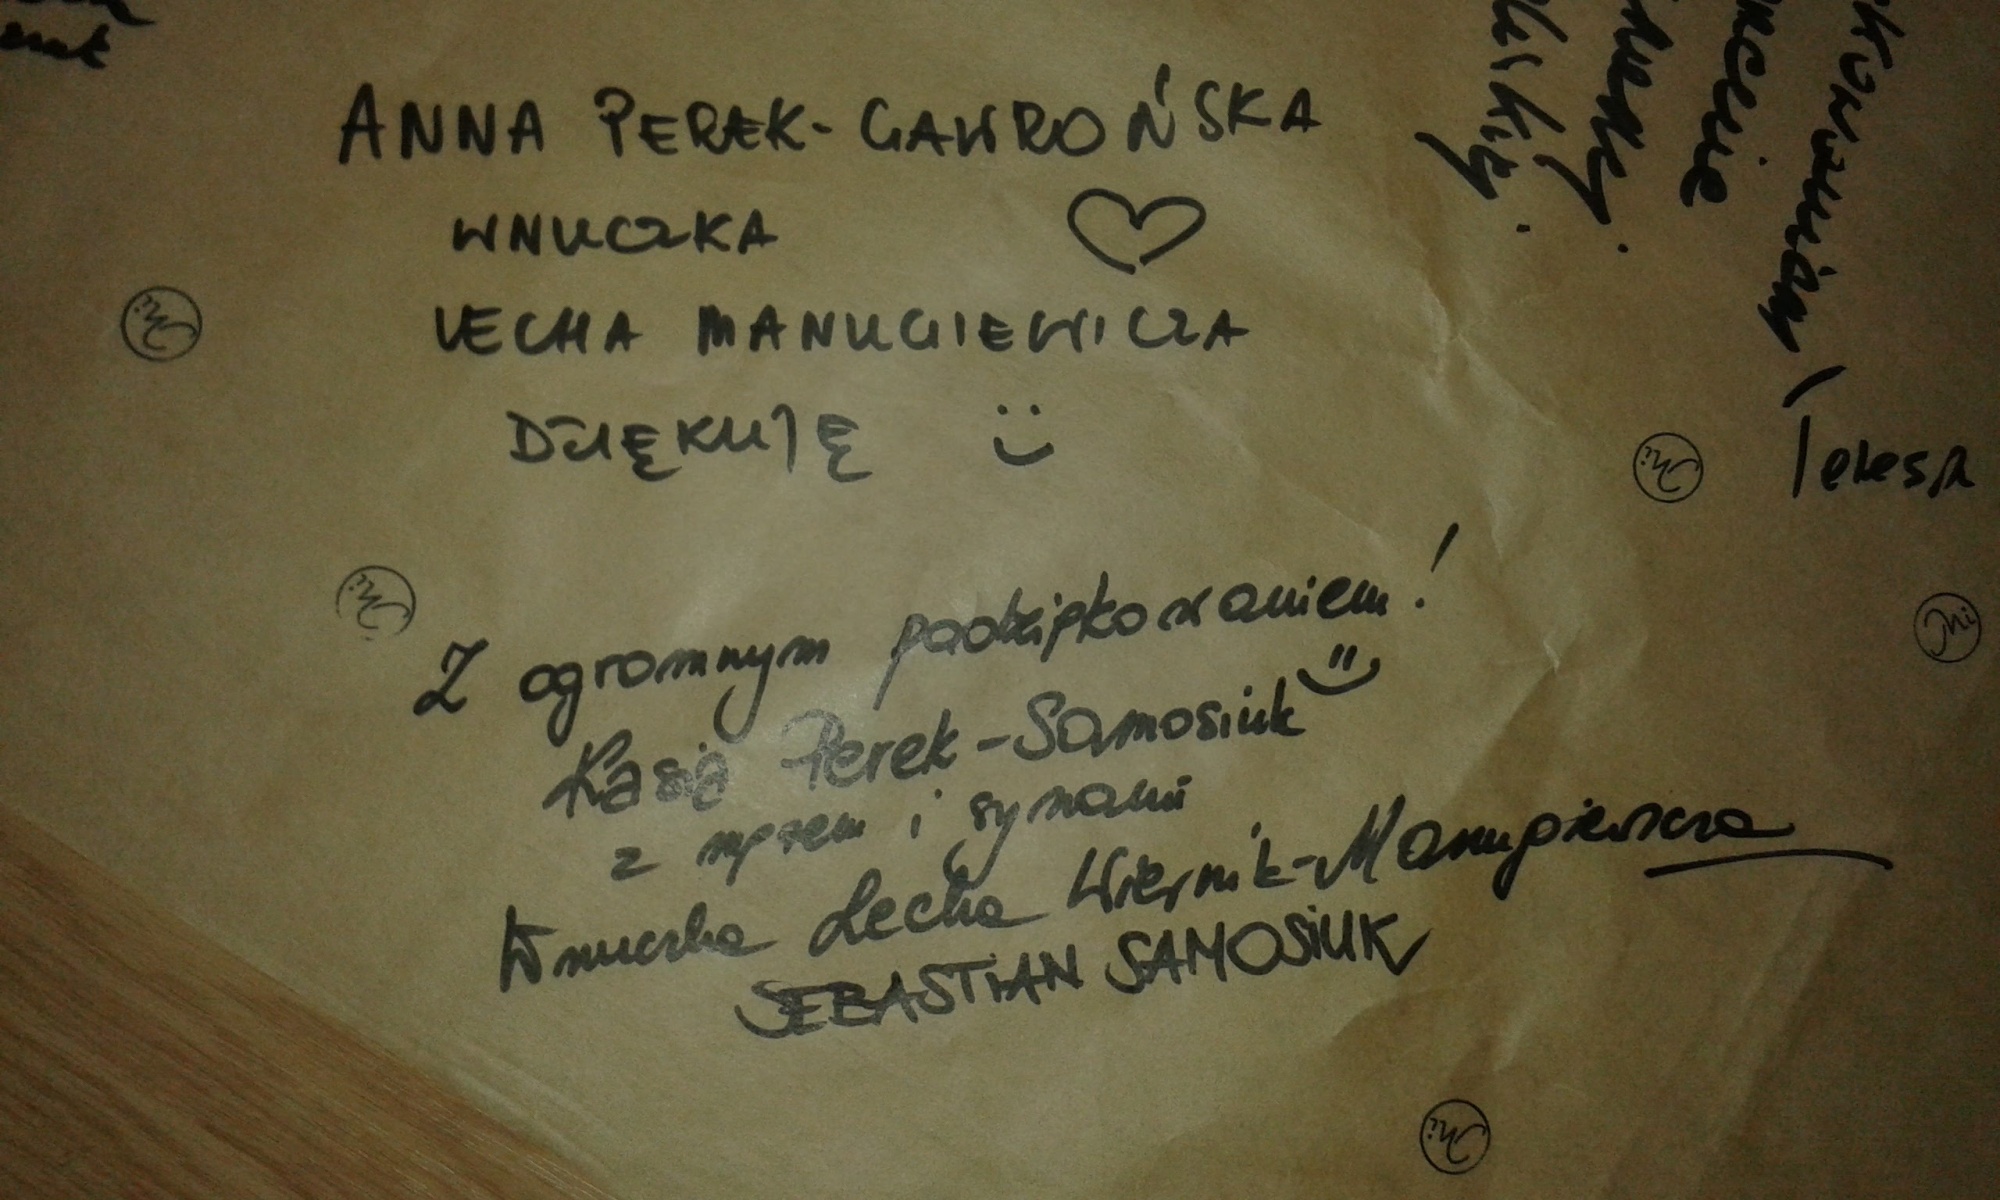 ANNA PEREK-GAWROŃSKA
WNUCZKA
LECHA MANUGIEWICZA
DZIĘKUJĘ
Z ogromnym podziękowaniem!
Kasia Perek-Samosiuk
z mężem i synami
Wnuczka Lecha Wiernik-Manugiewicza
SEBASTIAN SAMOSIUK
Teresa